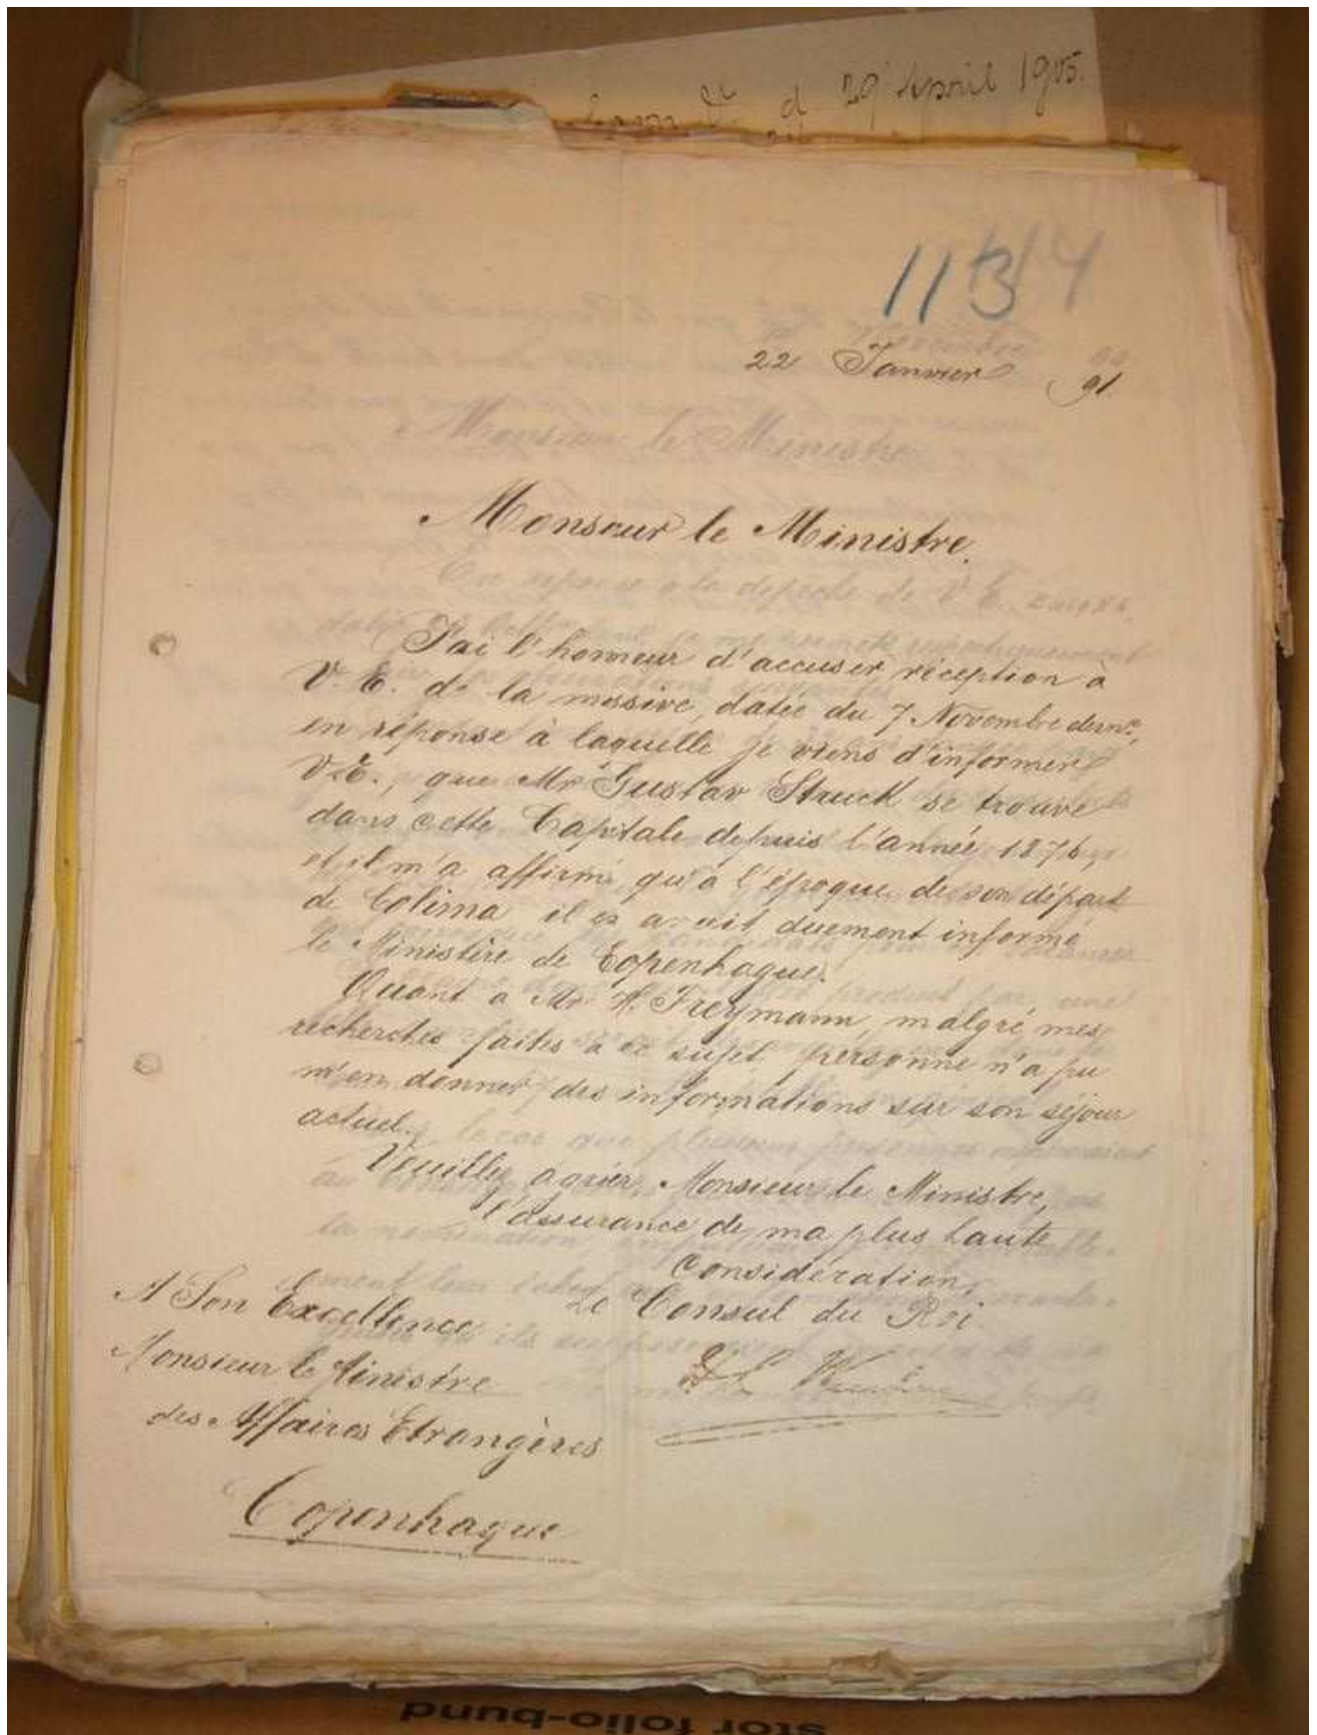 29 April 1905.
113
22 Janvier 91.
Monsieur le Ministre.
J'ai l'honneur d'accuser réception à
V. E. de la missive, datée du 7 Novembre dernr,
en réponse à laquelle je viens d'informer
V. E., que Mr Gustav Struck se trouve
dans cette Capitale depuis l'année 1876,
et il m'a affirmé qu'à l'époque de son départ
de Colima il en avait duement informé
le Ministère de Copenhague.
Quant à Mr H. Freymann, malgré mes
recherches faites à ce sujet personne n'a pu
m'en donner des informations sur son séjour
actuel.
Veuillez agréer, Monsieur le Ministre,
l'assurance de ma plus haute
Considération,
Le Consul du Roi
A Son Excellence
Monsieur le Ministre
des Affaires Etrangères
Copenhague
stor folio-bund